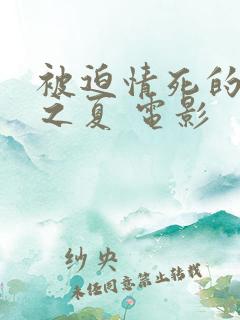 被迫情死的
之夏 電影
纱央
未经同意禁止转载